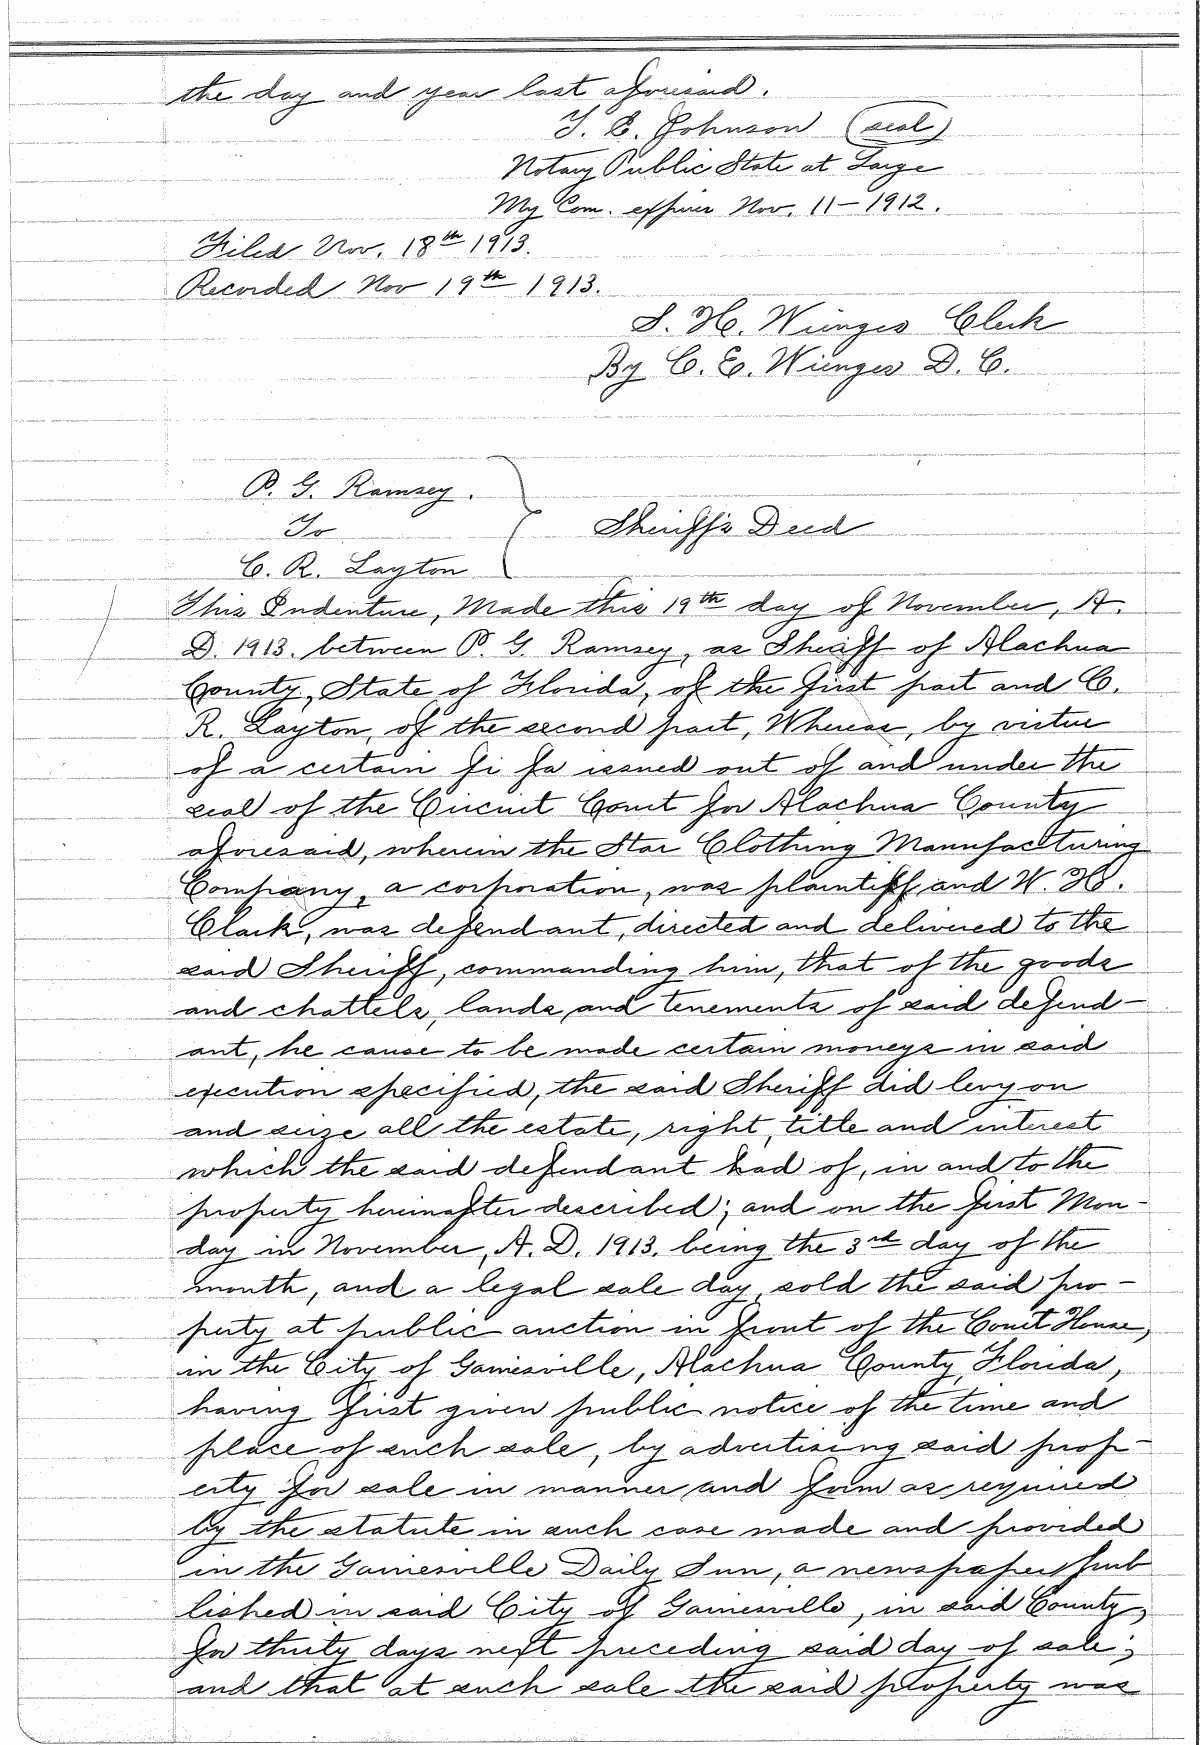 the day and year last aforesaid.
T. E. Johnson (seal)
Notary Public State at Large
My Com. expires Nov. 11-1912.
Filed Nov. 18th 1913.
Recorded Nov 19th 1913.
S. H. Wienges Clerk
By C. E. Wienges D. C.
P. G. Ramsey.
To
Sheriff's Deed
C. R. Layton
This Indenture, Made this 19th day of November, A.
D. 1913. between P. G. Ramsey, as Sheriff of Alachua
County, State of Florida, of the first part and C.
R. Layton, of the second part, Whereas, by virtue
of a certain fi fa issued out of and under the
seal of the Circuit Court for Alachua County
aforesaid, wherein the Star Clothing Manufacturing
Company, a corporation, was plaintiff and W. H.
Clark, was defendant, directed and delivered to the
said Sheriff, commanding him, that of the goods
and chattels, lands and tenements of said defend-
ant, he cause to be made certain moneys in said
execution specified, the said Sheriff did levy on
and seize all the estate, right, title and interest
which the said defendant had of, in and to the
property hereinafter described; and on the first Mon-
day in November, A. D. 1913. being the 3rd day of the
month, and a legal sale day, sold the said pro-
perty at public auction in front of the Court House,
in the City of Gainesville, Alachua County, Florida,
having first given public notice of the time and
place of such sale, by advertising said prop-
erty for sale in manner and form as required
by the statute in such case made and provided
in the Gainesville Daily Sun, a newspaper pub
lished in said City of Gainesville, in said County,
for thirty days next preceding said day of sale;
and that at such sale the said property was